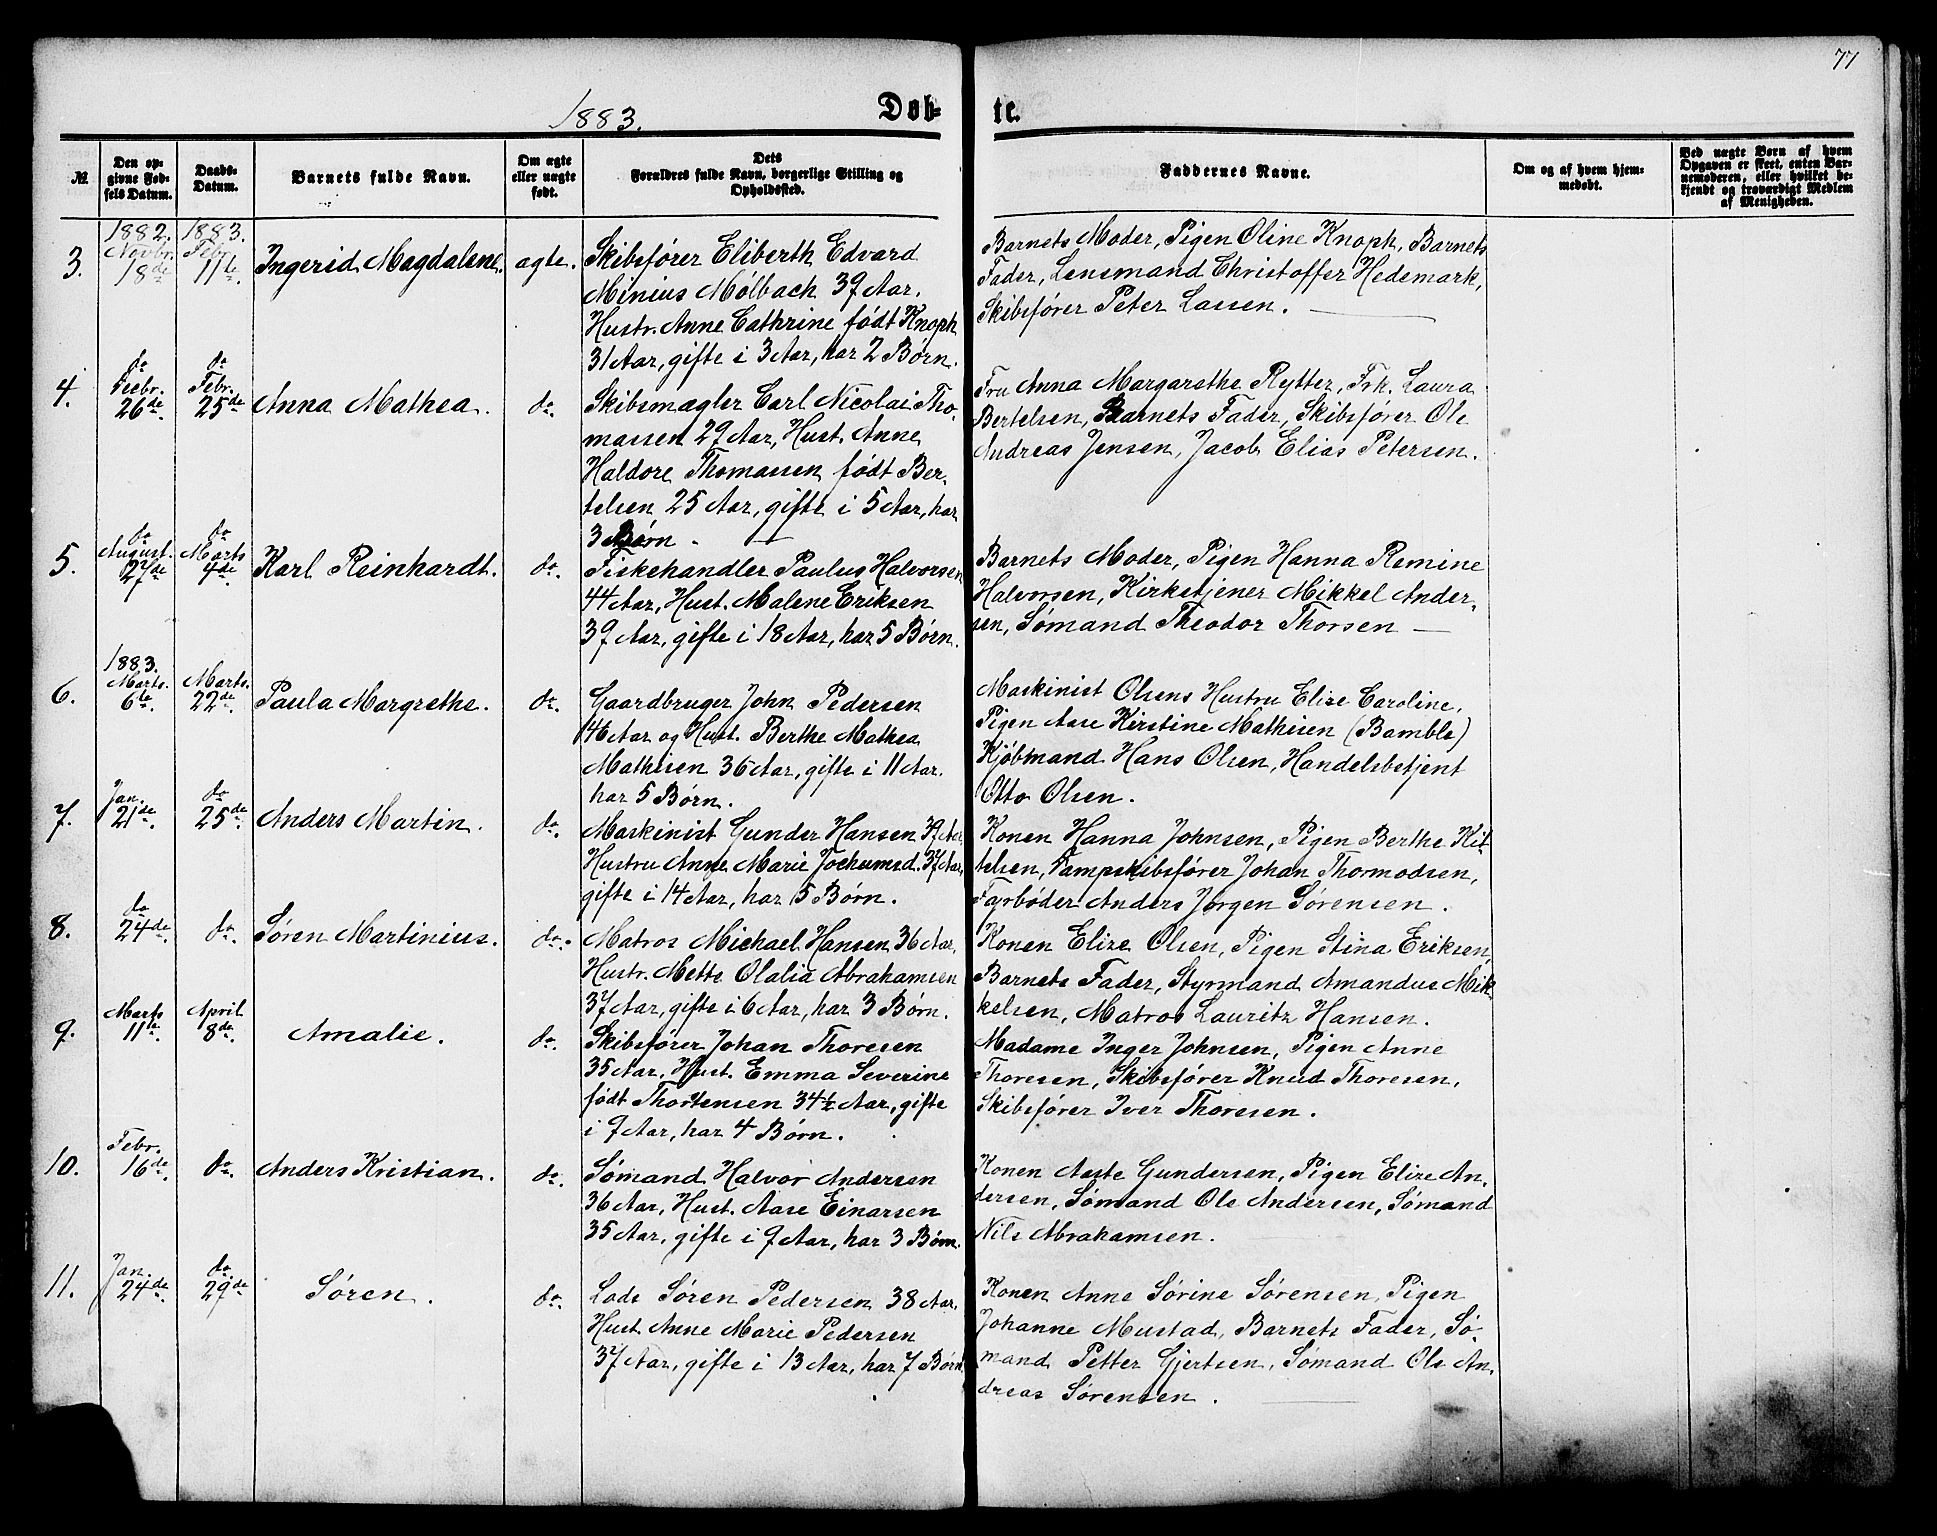 77
1883. Døb-
te.
№
Den op-
givne Fød-
sels Datum.
Daabs-
Datum.
Barnets fulde Navn.
Om ægte
eller uægte
født.
Dets
Forældres fulde Navn, borgerlige Stilling og
Opholdssted.
Faddernes Navne.
Om og af hvem hjem-
medøbt.
Ved uægte Børn af hvem
Opgaven er skeet, enten Bar-
nemoderen, eller hvilket be-
kjendt og troværdigt Medlem
af Menigheden.
3.
1882.
Novbr.
18de
1883.
Febr.
11te.
Ingerid Magdalene.
ægte.
Skibsfører Eliberth Edvard
Minius Mølbach 39 Aar.
Hustr. Anne Cathrine født Knoph
31 Aar, gifte i 3 Aar, har 2 Børn.
Barnets Moder, Pigen Oline Knoph, Barnets
Fader, Lensmand Christoffer Hedemark,
Skibsfører Peter Lassen.
4.
do
Decbr.
26de.
do
Febr.
25de
Anna Mathea.
do.
Skibsmægler Carl Nicolai Tho-
massen 29 Aar, Hust. Anne
Haldore Thomassen født Ber-
telsen 25 Aar, gifte i 5 Aar, har
3 Børn.
Fru Anna Margarethe Rytter, Frk. Laura
Bertelsen, Barnets Fader, Skibsfører Ole
Andreas Jensen, Jacob Elias Petersen.
5.
do
August.
27de
do
Marts
4de.
Karl Reinhardt.
do.
Fiskehandler Paulus Halvorsen
44 Aar, Hust. Malene Eriksen
39 Aar, gifte i 18 Aar, har 5 Børn.
Barnets Moder, Pigen Hanna Remine
Halvorsen, Kirketjener Mikkel Ander-
sen, Sømand Theodor Thorsen
6.
1883.
Marts.
6te.
Marts.
22de.
Paula Margrethe.
do.
Gaardbruger John Pedersen
46 Aar og Hust. Berthe Mathea
Mathisen 36 Aar, gifte i 11 Aar.
har 5 Børn.
Maskinist Olsens Hustru Elise Caroline,
Pigen Aase Kirstine Mathisen (Bamble)
Kjøbmand Hans Olsen, Handelsbetjent
Otto Olsen.
7.
Jan.
21de.
do
25de.
Anders Martin.
do.
Maskinist Gunder Hansen 39 Aar,
Hustru Anne Marie Jochumsd. 37 Aar,
gifte i 14 Aar, har 5 Børn.
Konen Hanna Johnsen, Pigen Berthe Kit-
telsen, Dampskibsfører Johan Thormodsen,
Fyrbøder Anders Jørgen Sørensen.
8.
do
24de.
do.
Søren Martinius.
do.
Matros Michael Hansen 36 Aar,
Hustr. Mette Olalia Abrahamsen
37 Aar, gifte i 6 Aar, har 3 Børn.
Konen Elize Olsen, Pigen Stina Eriksen,
Barnets Fader, Styrmand Amandus Mik-
kelsen, Matros Lauritz Hansen.
9.
Marts
11te.
April
8de.
Amalie.
do.
Skibsfører Johan Thoresen
35 Aar, Hust. Emma Severine
født Thortensen 34½ Aar, gifte
i 9 Aar, har 4 Børn.
Madame Inger Johnsen, Pigen Anne
Thoresen, Skibsfører Knud Thoresen,
Skibsfører Iver Thoresen.
10.
Febr.
16de.
do.
Anders Kristian.
do.
Sømand Halvor Andersen
36 Aar, Hust. Aase Einarsen
35 Aar, gifte i 9 Aar, har 3 Børn.
Konen Aaste Gundersen, Pigen Elize An-
dersen, Sømand Ole Andersen, Sømand
Nils Abrahamsen.
11.
Jan.
24de.
do
29de
Søren.
do.
Lods Søren Pedersen 38 Aar,
Hust Anne Marie Pedersen
37 Aar, gifte i 13 Aar, har 7 Børn
Konen Anne Sørine Sørensen, Pigen
Johanne Mustad, Barnets Fader, Sø-
mand Petter Gjertsen, Sømand Ole An-
dreas Sørensen.